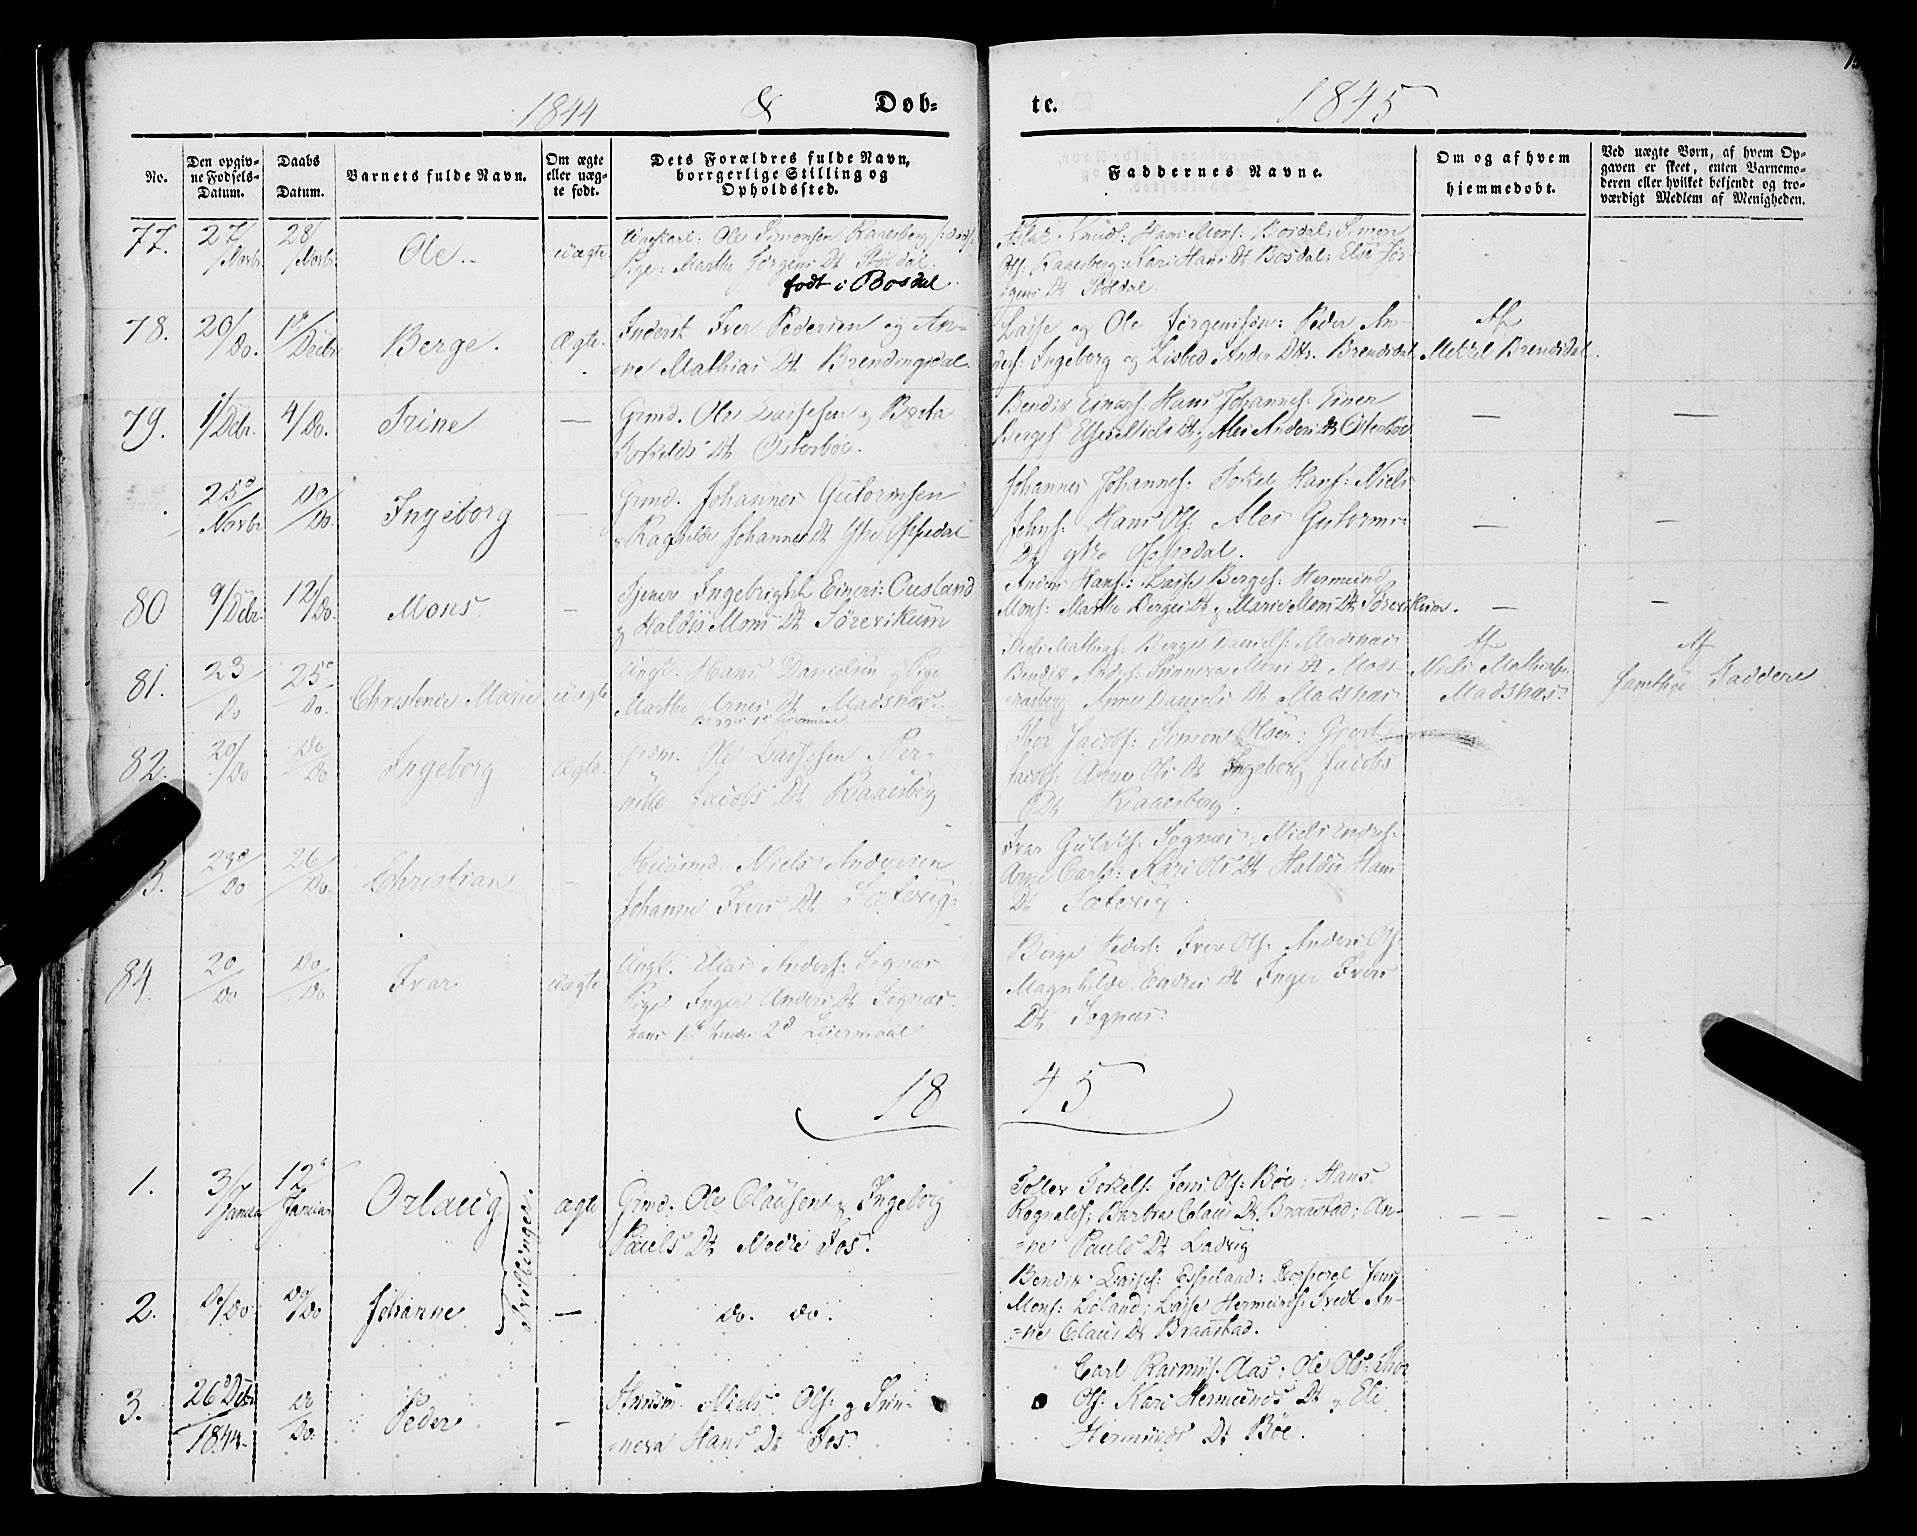 1844 & Døb=
te. 1845
No.
Den opgiv-
ne Fødsels-
Datum.
Daabs
Datum.
Barnets fulde Navn.
Om ægte
eller uæg-
te født.
Dets Forældres fulde Navn,
borrgerlige Stilling og
Opholdssted.
Faddernes Navne.
Om og af hvem
hjemmedøbt.
Ved uægte Børn, af hvem Op-
gaven er skeet, enten Barnemo-
deren eller hvilket bekjendt og tro-
værdigt Medlem af Menigheden.
77. 27/Novbr. 28/Novbr. Ole. uægte
Ungkarl: Ole Simonsen Kaaesberg
Pige: Marthe Jørgens Dt Stoldal.
født i Bosdal.
Aslak Knuds: Hans Mons: Bosdal; Simon
Ols: Kaaesberg; Kari Hans Dt Bosdal; Else Jør-
gens Dt Stoldal.
78. 20/Do. 1ste/Decbr. Berge. Ægte.
Inderst Iver Pedersen og An-
ne Mathias Dt Brendingsdal.
Lasse og Ole Jørgensøn: Peder An-
ders: Ingeborg og Lisbed Anders Dtr. Brendsdal
Af
Mekkel Brendsdal.
79. 1/Debr. 4/Do. Trine —
Grmd. Ole Lassesen & Brita
Torkilds Dt Østerbøe.
Bendix Einars: Hans Johannes: Einer
Berges: Elsei Niels Dt & Ales Anders Dt Østerbøe
— —
25d/Novbr Do/Do. Ingeborg —
Grmd. Johannes Gutormsen
& Raghilde Johannes Dt Ytre Oppedal
Johannes Johannes: Tokel Hans: Niels
Johns: Hans Ols: Ales Gutorms
Dt ytre Oppedal.
— —
80 9/Debr. 12/Do. Mons. —
Tjener Ingebright Einers: Ousland
& Haldis Mons Dt Sørevikum
Anders Hans: Lasse Berges: Hermund
Mons: Marthe Berges Dt & Marie Mons Dt Sørevikum.
— —
81. 23/Do 25d/Do. Christence Marie uægte
Ungk. Hans Danielsen & Pige
Marthe Arnes Dt Madsnæs.
Begges 1ste Leiermaal
Niels Mathias: Berge Daniels: Madsnæs
Bendix Anders: Sunneva Mons Dt
Anne Daniels Dt Madsnæs
Af
Niels Mathias:
Madsnæs.
Af
samtlige Faddere
82. 20/Do Do/Do Ingeborg Ægte.
Grdm. Ole Lassesen & Per-
nille Jacobs Dt Kaaesberg
Thor Jacobs: Simon Olsen: Gjert
Jacobs: Anne Ols Dt Ingeborg Jacobs
Dt Kaaesberg.
3. 23d/Do 26/Do. Christian —
Huusmd. Niels Andersen
Johanne Ivers Dt Sætevig:
Ivar Gulaks: Sognæs; Niels Endres:
Anne Carls: Kari Ols Dt Haldis Hans
Dt Sætevig.
84. 20/Do Do/Do Ivar uægte
Ungk. Elias Anders: Sognæs
Pige Inger Anders Dt Sognæs.
hans 1ste hendes 2d Leiermaal
Berge Peders: Iver Ols: Anders Ols:
Magnhilde Endres Dt Inger Ivers
Dt Sognæs.
18 45
1. 3/Januar 12d/Januar Orlaug ægte
Tvillinger.
Grmd. Ole Clausen & Ingeborg
Pauls Dt Nedre Fos.
Tollev Torkels: Jens Ols: Bøe; Hans
Rognalds; Barbra Claus Dt. Braastad; An-
=ne Pauls Dt Ladvig
— — — —
2. Do/Do Do/Do Johanne —
Do. Do.
Bendix Lasses: Espeland; Corporal Jens
Mons: Løland; Lasse Hermunds: Tredl An-
=ne Claus Dt Braastad.
3. 26d Debr/1844. Do/Do. Peder —
Huusm. Niels Ols: & Sun-
=neva Hans Dt Fos.
Carl Rasmus: Aas; Ole Ols: Thor
Ols: Kari Hermunds Dt & Eli
Hermunds Dt Bøe.